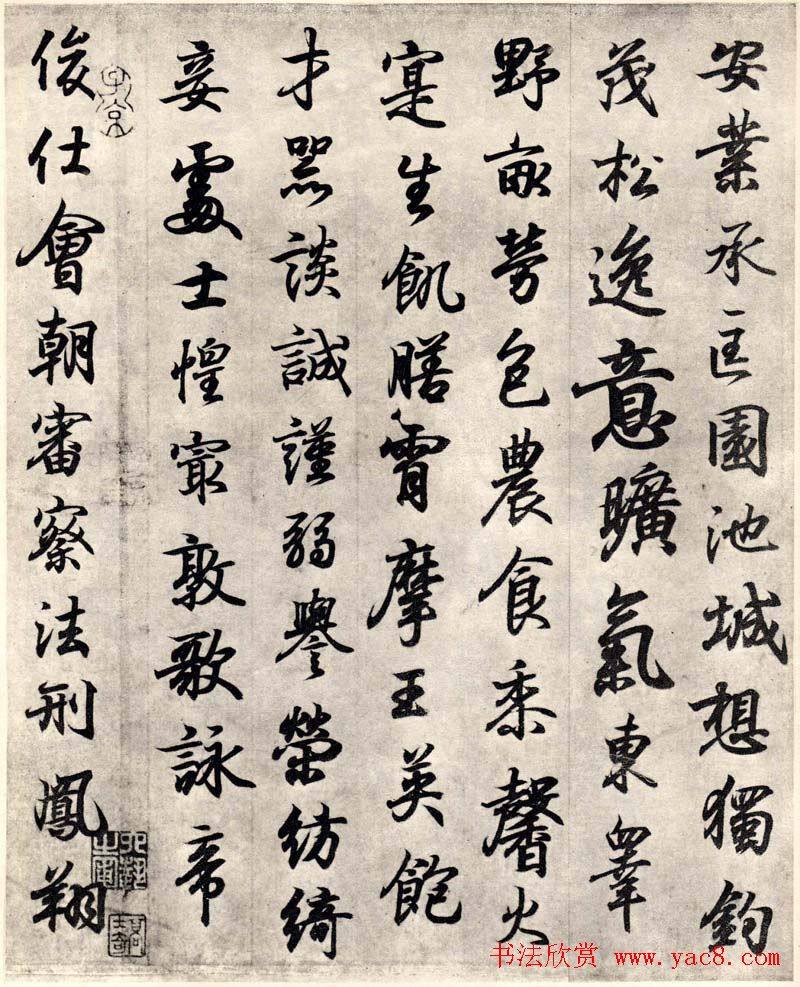 安業承匡園池城想獨鈞
茂松逸意曠氣東皋
野畝勞包農食黍馨火
寔生飢膳宵摩王英飽
才器談誠謹弱譽榮紡綺
妾處士惶寂敦歌詠帝
俊仕會朝審察法刑鳳翔
子京
书法欣赏 www.yac8.com